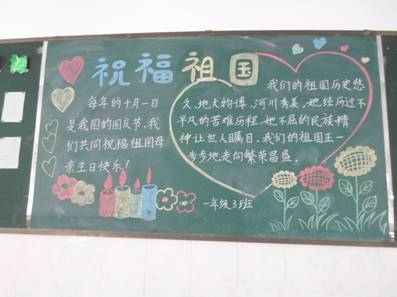 祝福祖国
每年的十月一日
是我国的国庆节,我
们共同祝福祖国母
亲生日快乐!
我们的祖国历史悠
久,地大物博,河川秀美,她经历过不
平凡的苦难历程,她不屈的民族精
神让世人瞩目。我们的祖国正一
步步地走向繁荣昌盛。
一年级3班